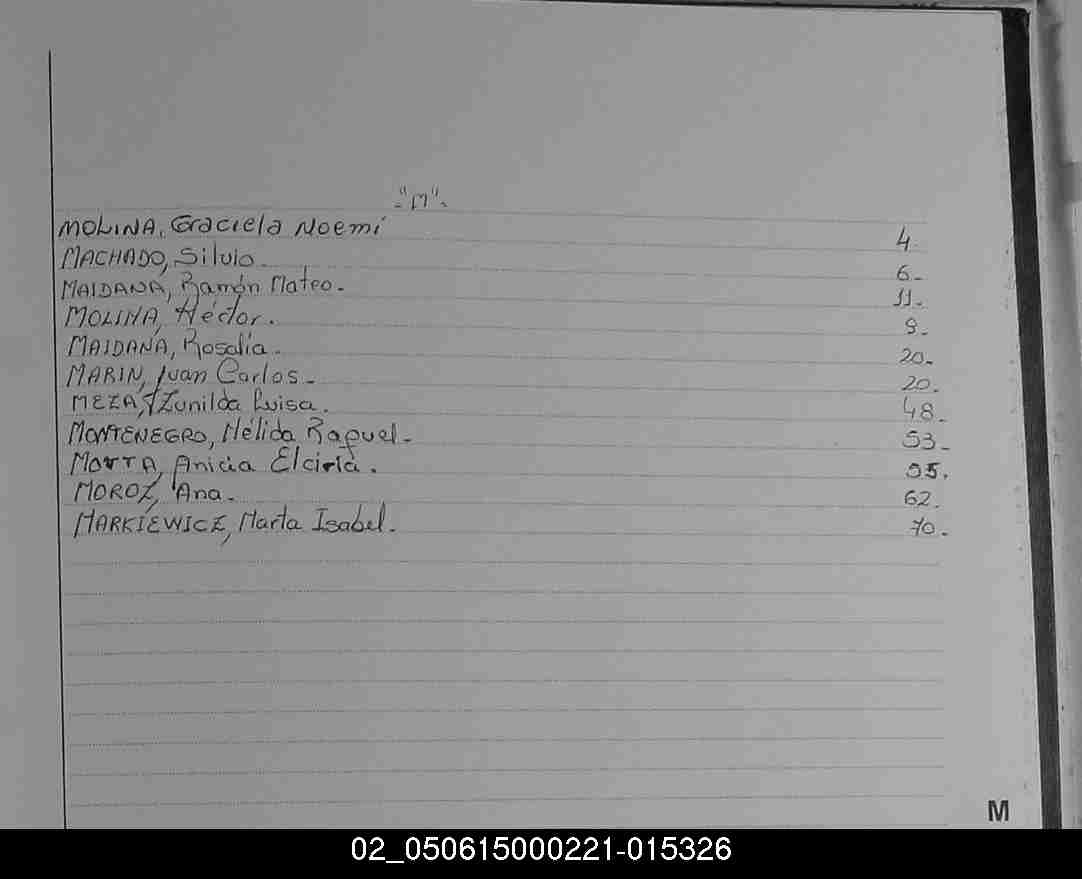 -"M"-
MOLINA, Graciela Noemí 4.
MACHADO, Silvio. 6-
MAIDANA, Ramón Mateo. 11.
MOLINA, Héctor. 9-
MAIDANA, Rosalía. 20-
MARIN, Juan Carlos. 20.
MEZA, Zunilda Luisa. 48.
MONTENEGRO, Nélida Raquel. 53-
MOTTA, Anicia 55.
MOROZ, Ana. 62.
MARKIEWICZ, Marta Isabel. 70.
M
02_050615000221-015326